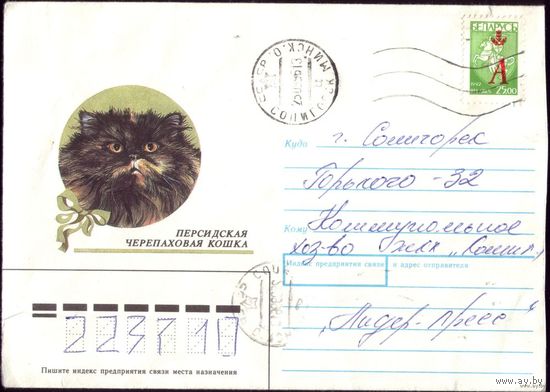 БЕЛАРУСЬ
А
25.00
ПЕРСИДСКАЯ
ЧЕРЕПАХОВАЯ КОШКА
Куда г. Солигорск
Горького -32
Кому Коммунальное
хоз-во
Индекс предприятия связи и адрес отправителя
„Лидер-пресс"
223710
Пишите индекс предприятия связи места назначения
www.ay.by